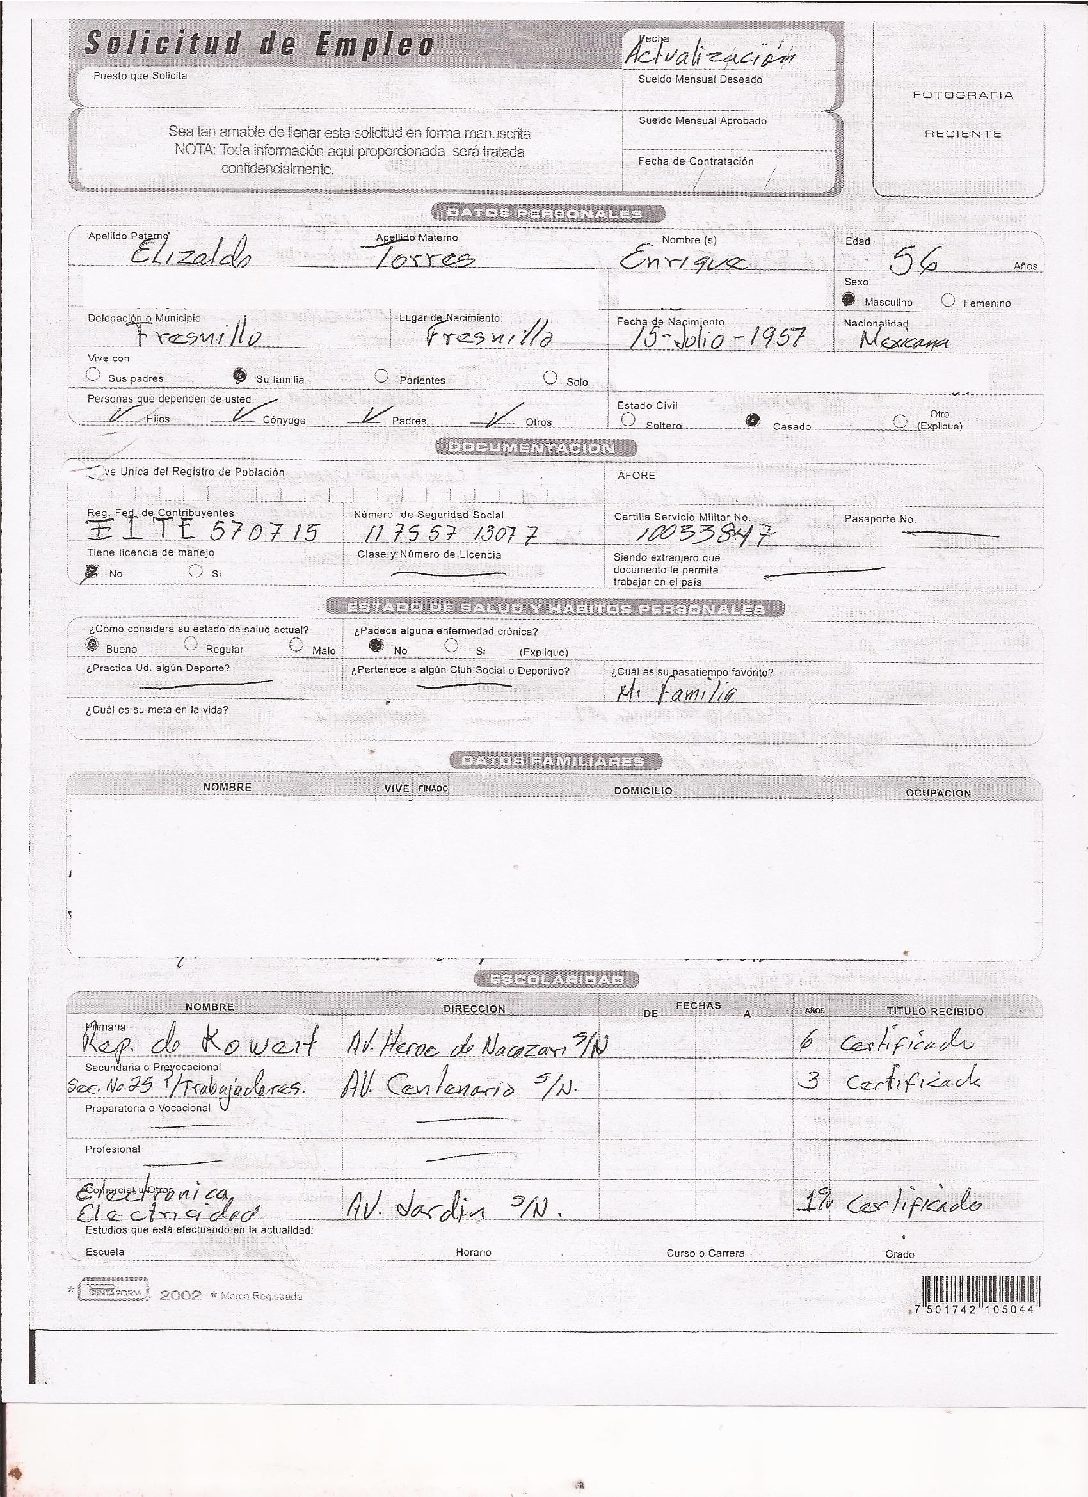 Solicitud de Empleo
Fecha
Actualización
Puesto que Solicita
Sueldo Mensual Deseado
FOTOGRAFIA
RECIENTE
Sueldo Mensual Aprobado
Sea tan amable de llenar esta solicitud en forma manuscrita
NOTA: Toda información aqui proporcionada sera tratada
confidencialmente.
Fecha de Contratación
/ /
DATOS PERSONALES
Apellido Paterno Apellido Materno Nombre (s) Edad
Elizalde Torres Enrique 56 Años
Sexo
Masculino Femenino
Delegación o Municipio Lugar de Nacimiento Fecha de Nacimiento Nacionalidad
Fresnillo Fresnillo 15-Julio-1957 Mexicana
Vive con
Sus padres Su familia Parientes Solo
Personas que dependen de usted Estado Civil
Hijos Cónyuge Padres Otros Soltero Casado Otro (Explique)
DOCUMENTACION
ve Unica del Registro de Población AFORE
Reg. Fed. de Contribuyentes Número de Seguridad Social Cartilla Servicio Militar No. Pasaporte No.
EITE 570715 11 75 57 1307 7 10033847
Tiene licencia de manejo Clase y Número de Licencia Siendo extranjero que
documento le permita
trabajar en el país
No Si
ESTADO DE SALUD Y HABITOS PERSONALES
¿Como considera su estado de salud actual? ¿Padece alguna enfermedad crónica?
Bueno Regular Malo No Si (Explique)
¿Practica Ud. algún Deporte? ¿Pertenece a algún Club Social o Deportivo? ¿Cuál es su pasatiempo favorito?
Mi Familia
¿Cuál es su meta en la vida?
DATOS FAMILIARES
NOMBRE VIVE FINADO DOMICILIO OCUPACION
ESCOLARIDAD
NOMBRE DIRECCION FECHAS DE A AÑOS TITULO RECIBIDO
Primaria
Rep. de Kowait Av. Heroe de Nacozari S/N 6 Certificado
Secundaria o Prevocacional
Sec. No 25 P/Trabajadores. AV. Centenario S/N. 3 Certificado
Preparatoria o Vocacional
Profesional
Comercial u Otras
Electronica
Electricidad AV. Jardin S/N. Certificado
Estudios que está efectuando en la actualidad:
Escuela Horario Curso o Carrera Grado
2002 * Marca Registrada
7 501742 105044